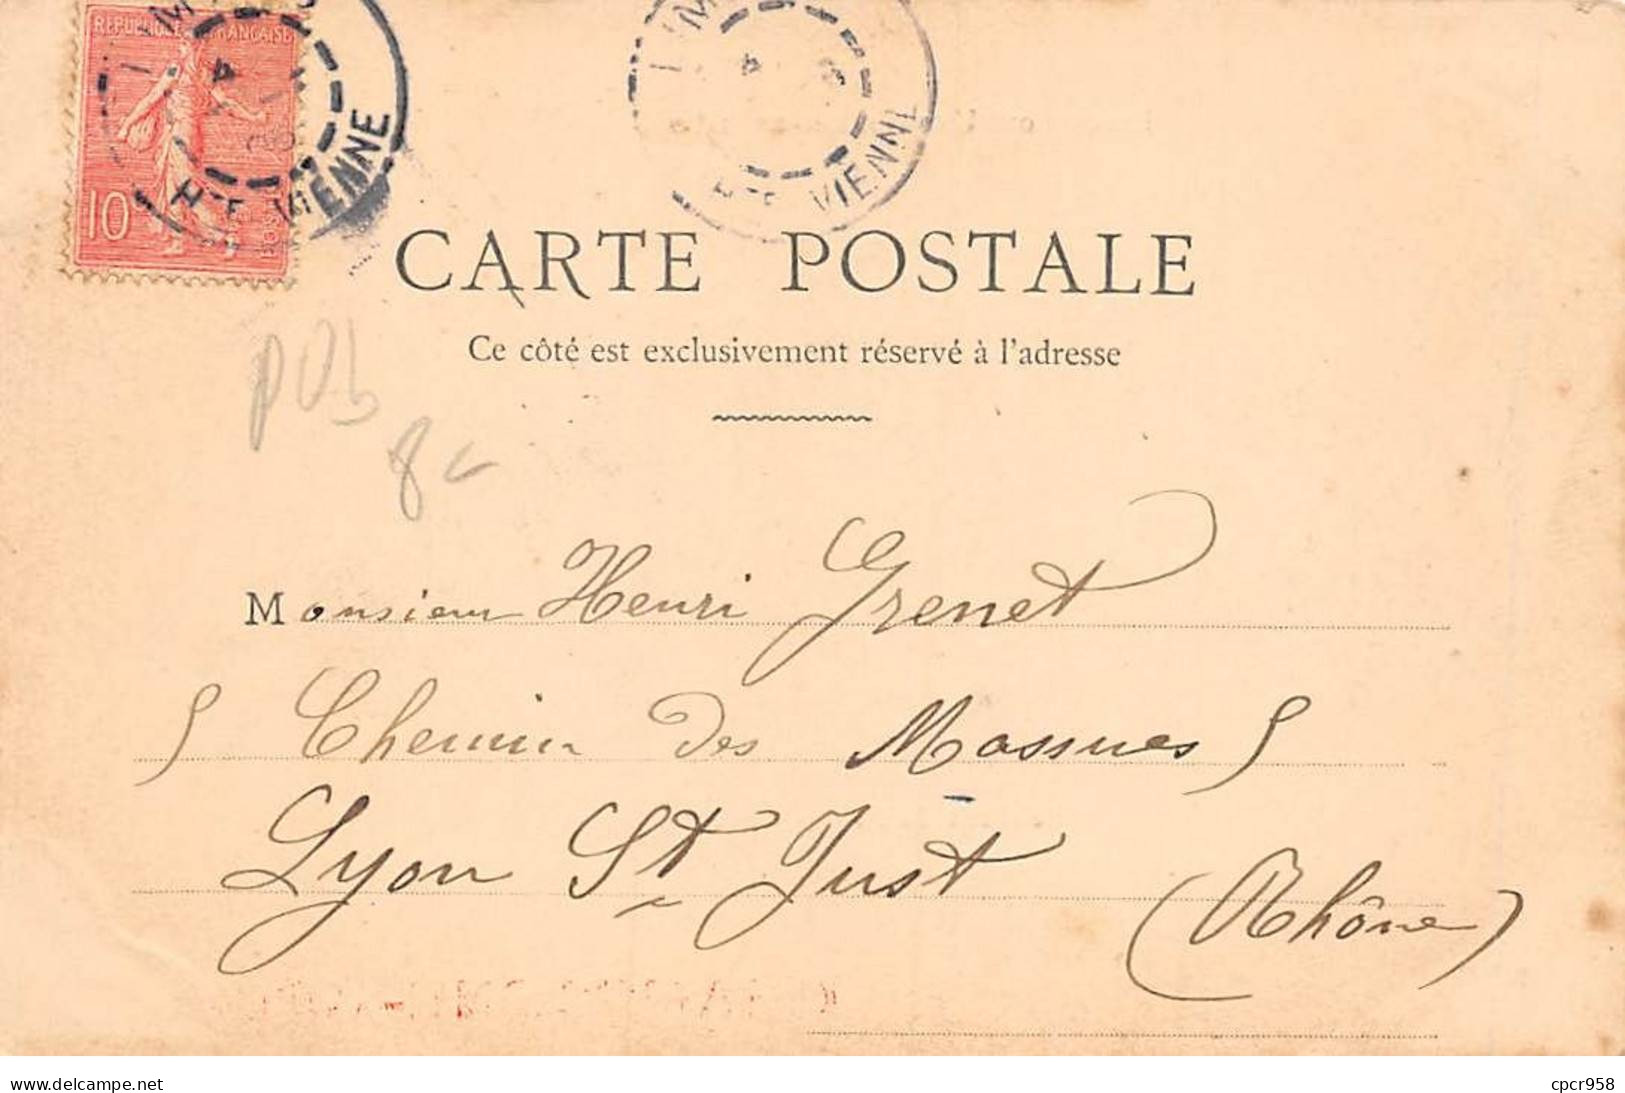 REPUBLIQUE FRANÇAISE
10
4
Hte VIENNE
4
Hte VIENNE
CARTE POSTALE
Ce côté est exclusivement réservé à l'adresse
8
Monsieur Henri Grenet
Chemin des Massues
Lyon St Just
(Rhône)
delcampe.net
cpcr958